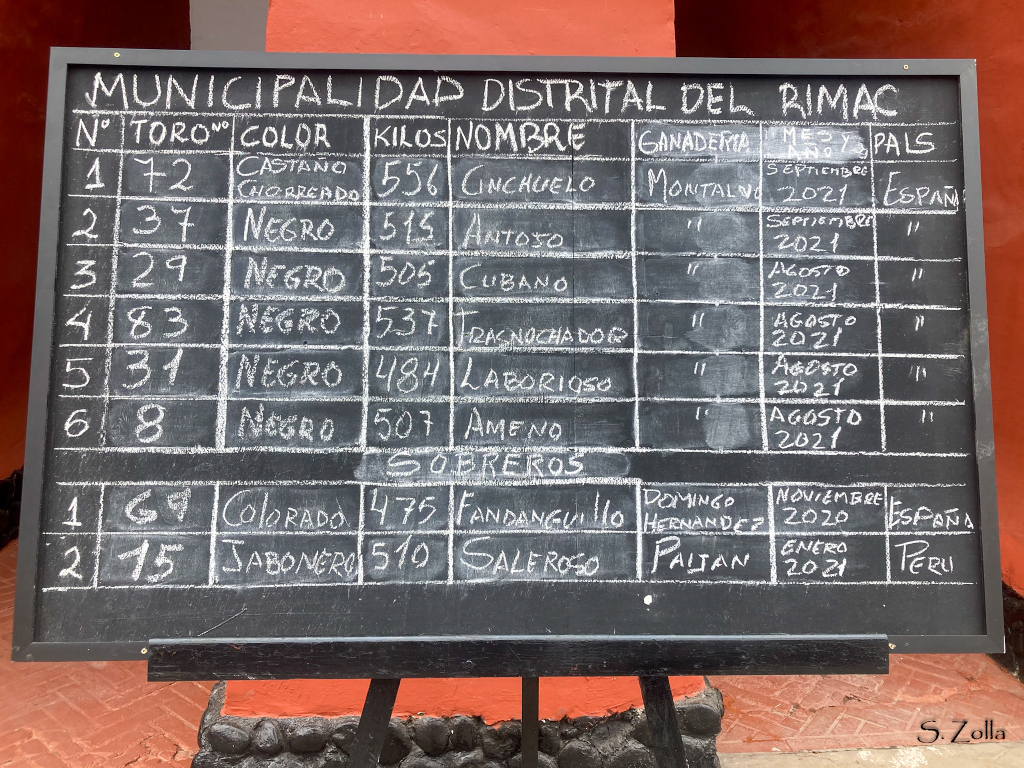 MUNICIPALIDAD DISTRITAL DEL RIMAC
Nº TORO Nº COLOR KILOS NOMBRE GANADERIA MES Y AÑO PAIS
1 72 CASTAÑO CHORREADO 556 CINCHUELO MONTALVO SEPTIEMBRE 2021 ESPAÑA
2 37 NEGRO 515 ANTOSO " SEPTIEMBRE 2021 "
3 29 NEGRO 505 CUBANO " AGOSTO 2021 "
4 83 NEGRO 537 TRASNOCHADOR " AGOSTO 2021 "
5 31 NEGRO 484 LABORIOSO " AGOSTO 2021 "
6 8 NEGRO 507 AMENO " AGOSTO 2021 "
SOBREROS
1 COLORADO 475 FANDANGUILLO DOMINGO HERNANDEZ NOVIEMBRE 2020 ESPAÑA
2 15 JABONERO 510 SALEROSO PAIJAN ENERO 2021 PERU
S. Zolla